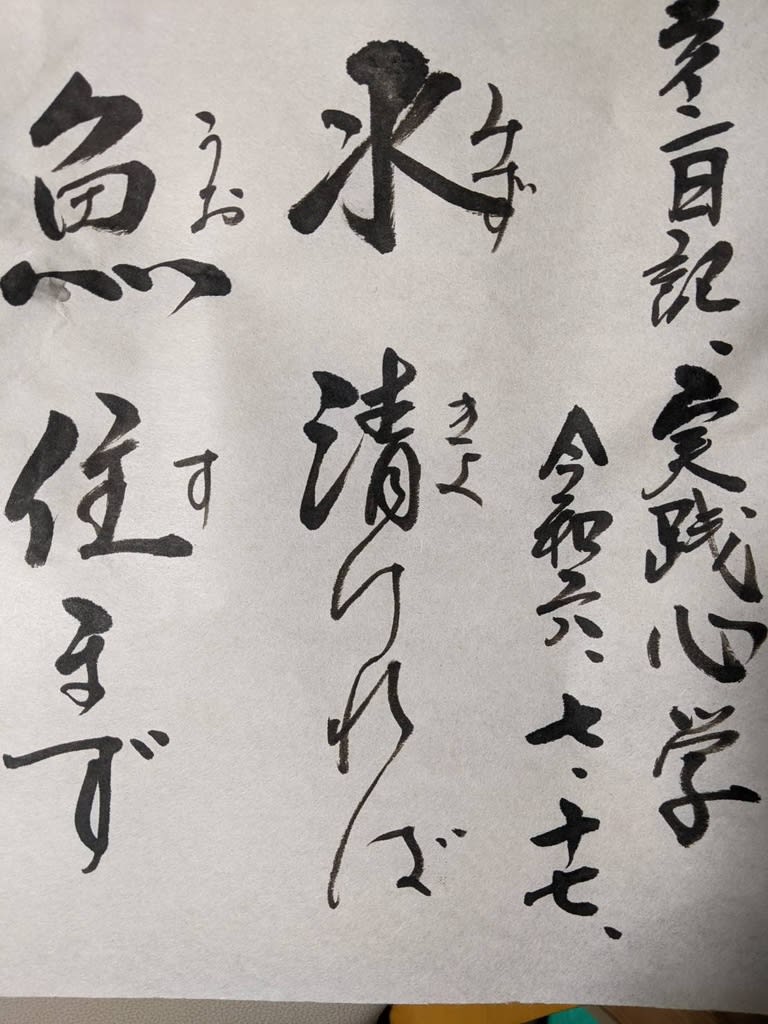 日記、実践心学
令和六、七、十七、
みず きよ
水清ければ
うお す
魚住まず